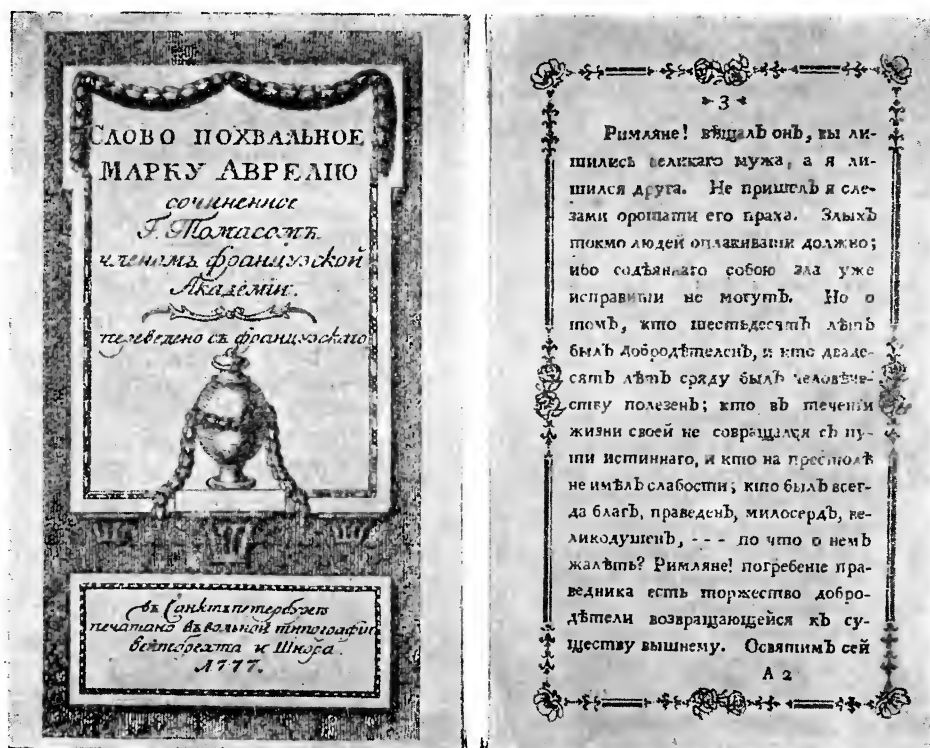 СЛОВО ПОХВАЛЬНОЕ
МАРКУ АВРЕЛІЮ
сочиненное
Г. Томасомъ
членомъ французской
Академіи.
переведено съ французскаго
въ Санктпетербургѣ
печатано въ вольной типографіи
Вейтбрехта и Шнора.
1777.
3
Римляне! вѣщалъ онъ, вы ли-
шились великаго мужа, а я ли-
шился друга. Не пришелъ я сле-
зами орошати его праха. Злыхъ
токмо людей оплакивати должно;
ибо содѣяннаго собою зла уже
исправити не могутъ. Но о
томъ, кто шестьдесятъ лѣтъ
былъ добродѣтеленъ, и кто двадe-
сять лѣтъ сряду былъ человѣче-
ству полезенъ; кто въ теченіи
жизни своей не совращался съ пу-
ти истиннаго, и кто на престолѣ
не имѣлъ слабости; кто былъ всег-
да благъ, праведенъ, милосердъ, ве-
ликодушенъ, - - - по что о немъ
жалѣть? Римляне! погребеніе пра-
ведника есть торжество добро-
дѣтели возвращающейся къ су-
ществу вышнему. Освятимъ сей
А 2